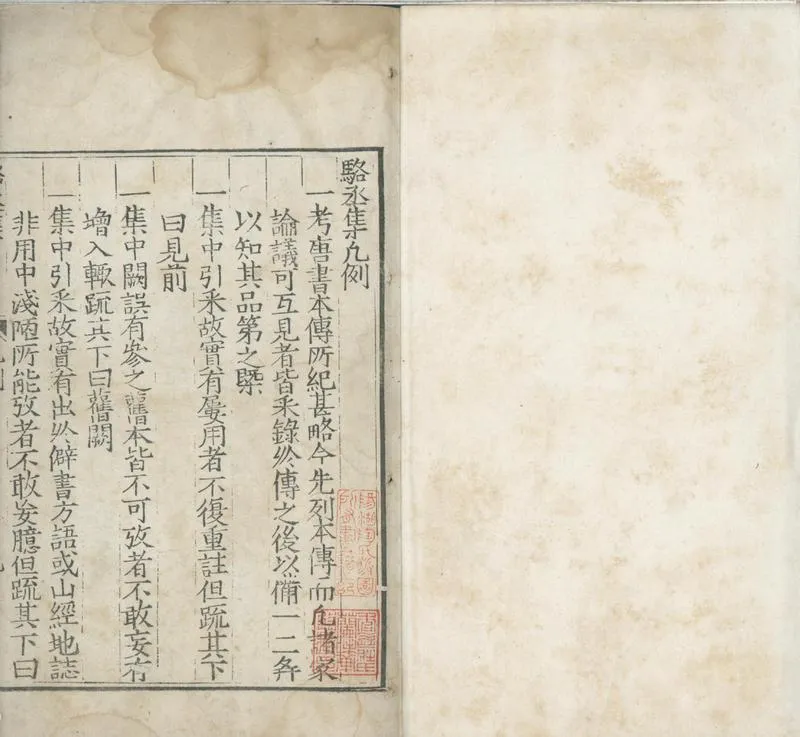 駱丞集凡例
一考唐書本傳所紀甚略今先列本傳而凡諸家
論議可互見者皆采錄於傳之後以備一二各
以知其品第之槩
一集中引采故實有屢用者不復重註但疏其下
曰見前
一集中闕誤有參之舊本皆不可攷者不敢妄有
增入輒疏其下曰舊闕
一集中引采故實有出於僻書方語或山經地誌
非用中淺陋所能攷者不敢妄臆但疏其下曰